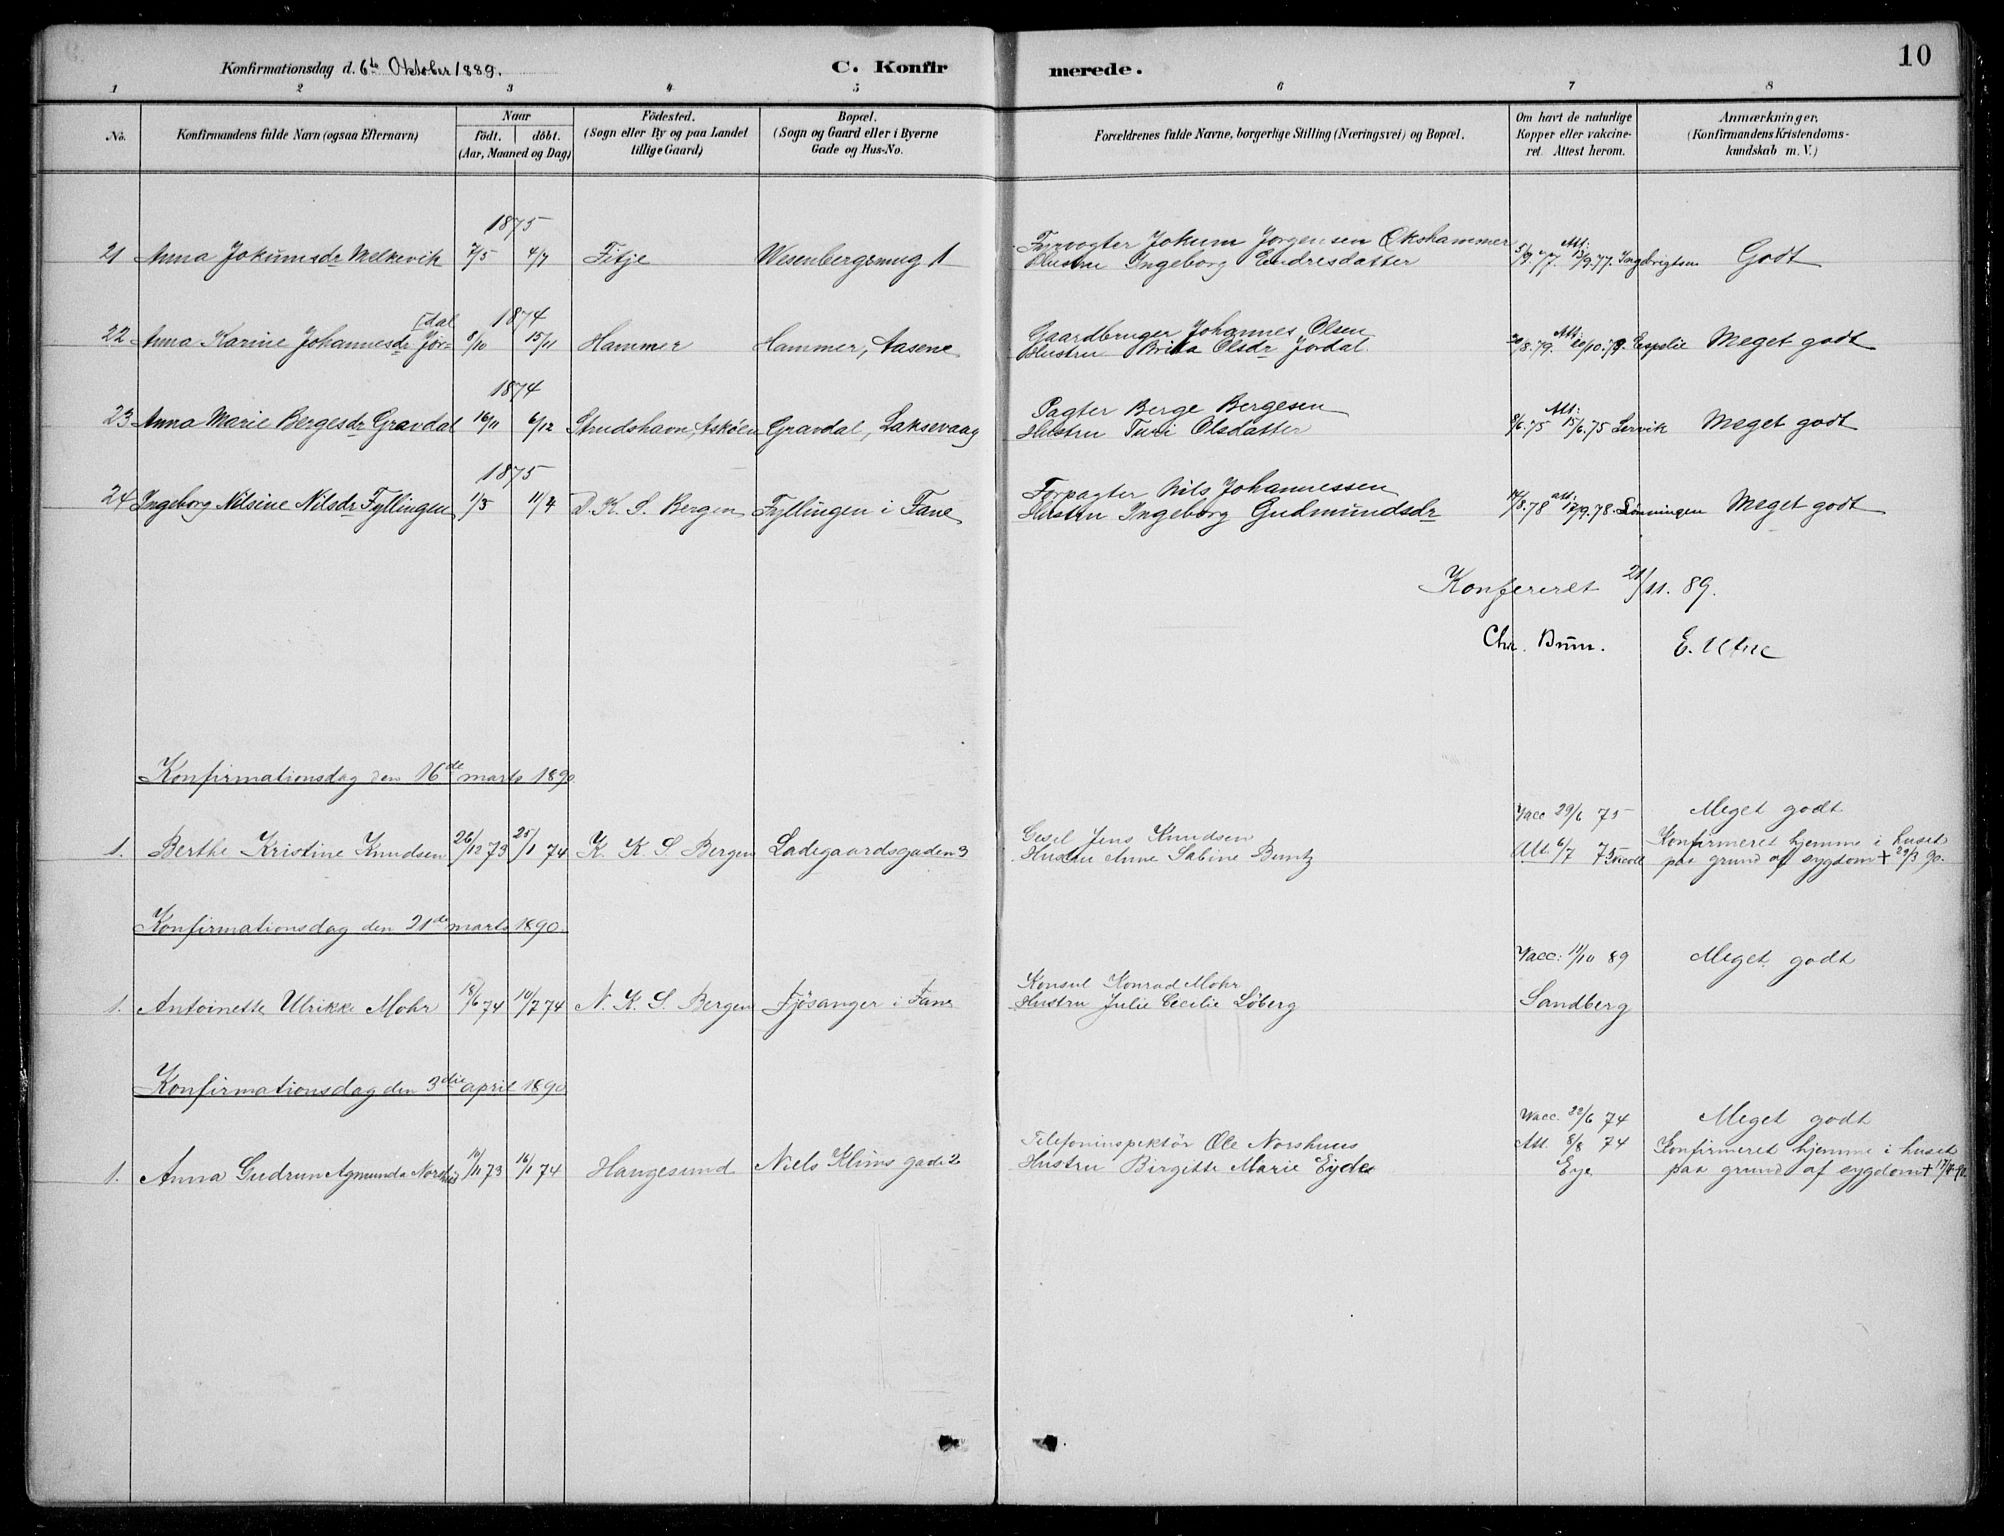 10
Konfirmationsdag d. 6te Oktober 1889.
C. Konfirmerede.
1 2 3 4 5 6 7 8
No.
Konfirmandens fulde Navn (ogsaa Efternavn)
Naar
födt. döbt.
(Aar, Maaned og Dag)
Födested.
(Sogn eller By og paa Landet
tillige Gaard)
Bopæl.
(Sogn og Gaard eller i Byerne
Gade og Hus-No.
Forældrenes fulde Navne, borgerlige Stilling (Næringsvei) og Bopæl.
Om havt de naturlige
Kopper eller vakcine-
ret. Attest herom.
Anmærkninger.
(Konfirmandens Kristendoms-
kundskab m. V.)
1875
21 Anna Jokumsdr Melkevik 7/5 4/7 Fitje Wesenbergsmug 1
Fyrvogter Jokum Jörgensen Okshammer
Hustru Ingeborg Endresdatter
5/9.77. Att: 13/9.77. Ingebrigtsen Godt
1874
22 Anna Karine Johannesdr Jör-[dal 8/10 15/11 Hammer Hammer, Aasene
Gaardbruger Johannes Olsen
Hustru Brita Olsdr Jordal.
20/8.79. Att: 20/10.79. Espelie Meget godt
1874
23 Anna Marie Bergesdr Gravdal 16/11 6/12 Strudshavn, Asköen Gravdal, Laksevaag
Pagter Berge Bergesen
Hustru Turi Olsdatter
8/6.75 Att: 15/6.75 Lervik Meget godt
1875
24 Ingeborg Nilsine Nilsdr Fyllingen 1/3 11/4 D. K. S. Bergen Fyllingen i Fane
Forpagter Nils Johannessen
Hustru Ingeborg Gudmundsdr
14/8.78 att: 17/9.78. Lönningen Meget godt
Konfereret 21/11. 89.
Chr. Bruun. E. Utne
Konfirmationsdag den 16de marts 1890
1. Berthe Kristine Knudsen 26/12 73 25/1 74 K. K. S Bergen Ladegaardsgaden 3
Gesel Jens Knudsen
Hustru Anne Sabine Buntz
Vacc 29/6 75
Att. 6/7 75
Meget godt
Konfirmeret hjemme i huset
paa grund af sygdom + 29/3 90.
Konfirmationsdag den 21de marts 1890
1. Antoinette Ulrikke Mohr 18/6 74 10/7 74 N. K. S. Bergen Fjösanger i Fane
Konsul Konrad Mohr
Hustru Julie Cecilie Löberg
Vacc: 11/10 89
Sandberg
Meget godt
Konfirmationsdag den 3die april 1890
1. Anna Gudrun Agmunda Norshus 10/11 73 16/1 74 Haugesund Niels Klims gade 2
Telefoninspektör Ole Norshuus
Hustru Birgitte Marie Eyde
Vacc. 22/6 74
Att. 8/8 74
Eye
Meget godt
Konfirmeret hjemme i huset
paa grund af sygdom + 17/4 90.